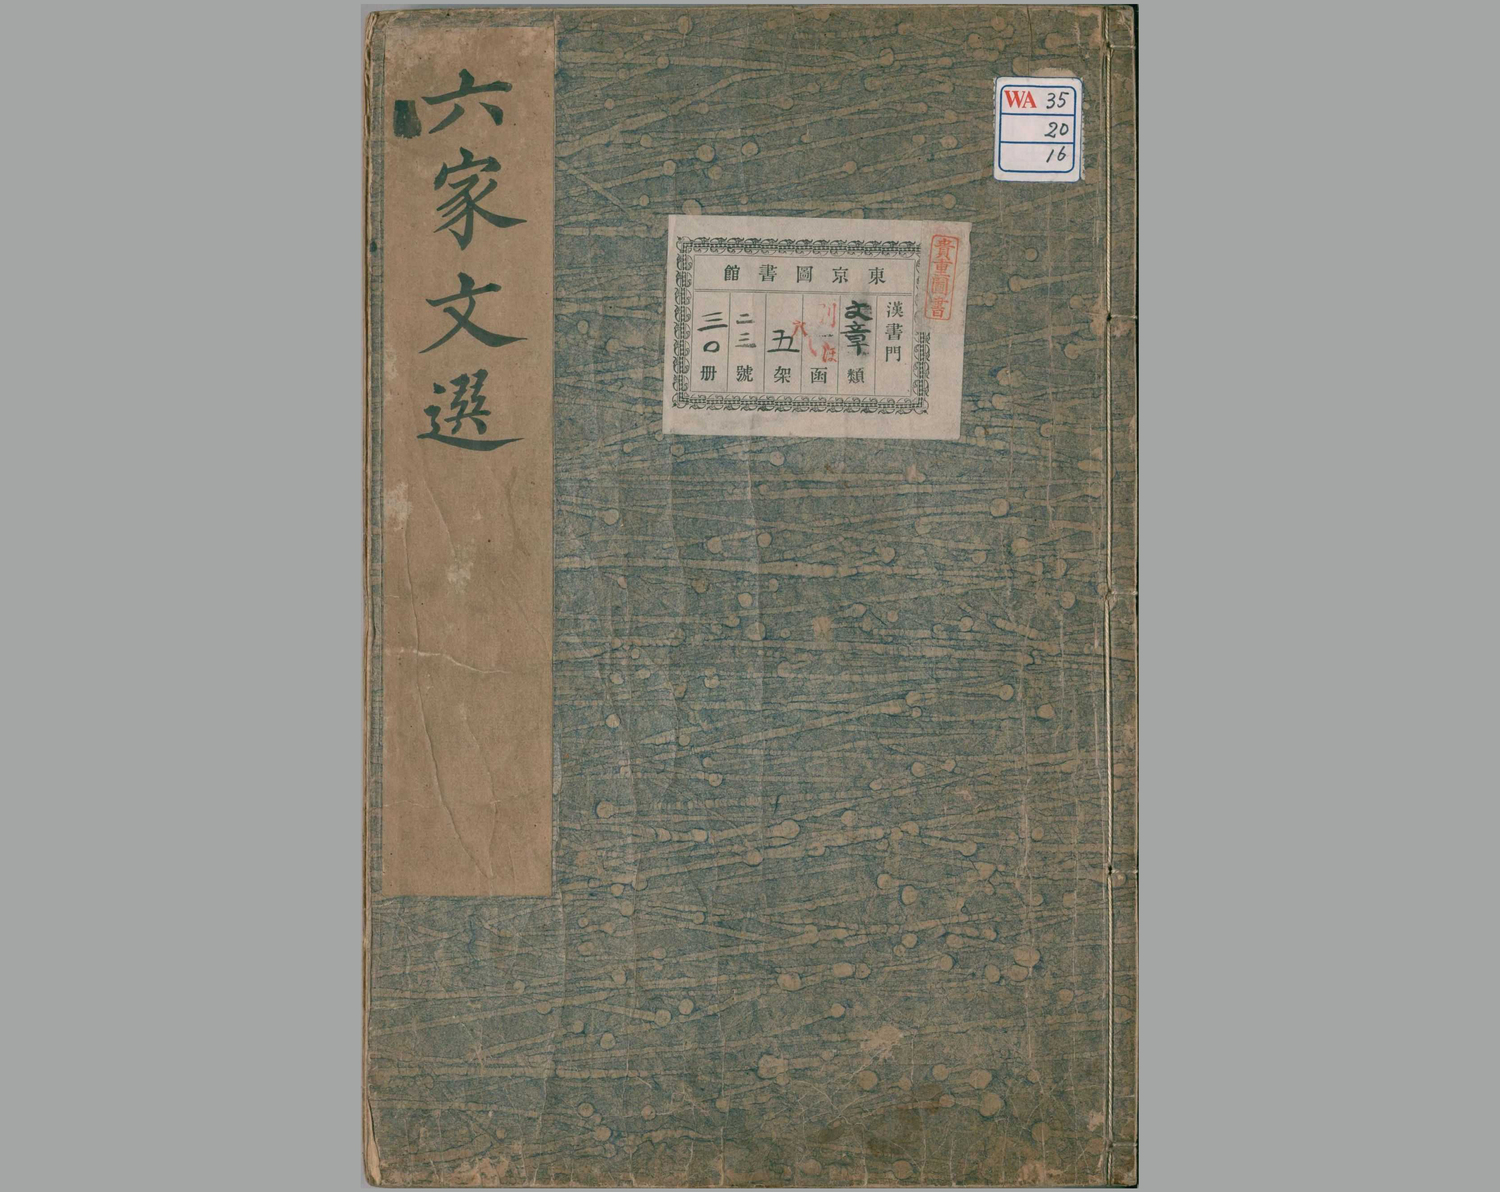 六家文選
WA 35
20
16
貴重圖書
東京圖書館
漢書門
文章類
函
五架
二三號
三〇册